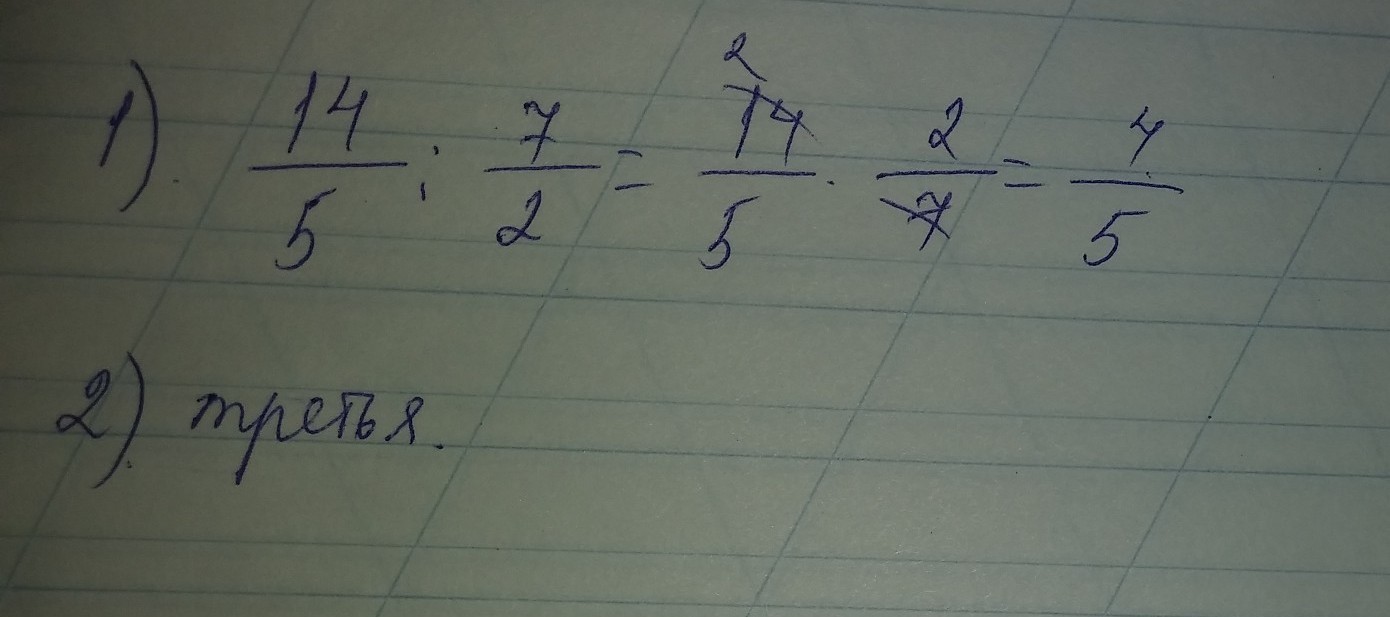 1). 14/5 : 7/2 = 2 14/5 · 2/7 = 4/5
2). третья.